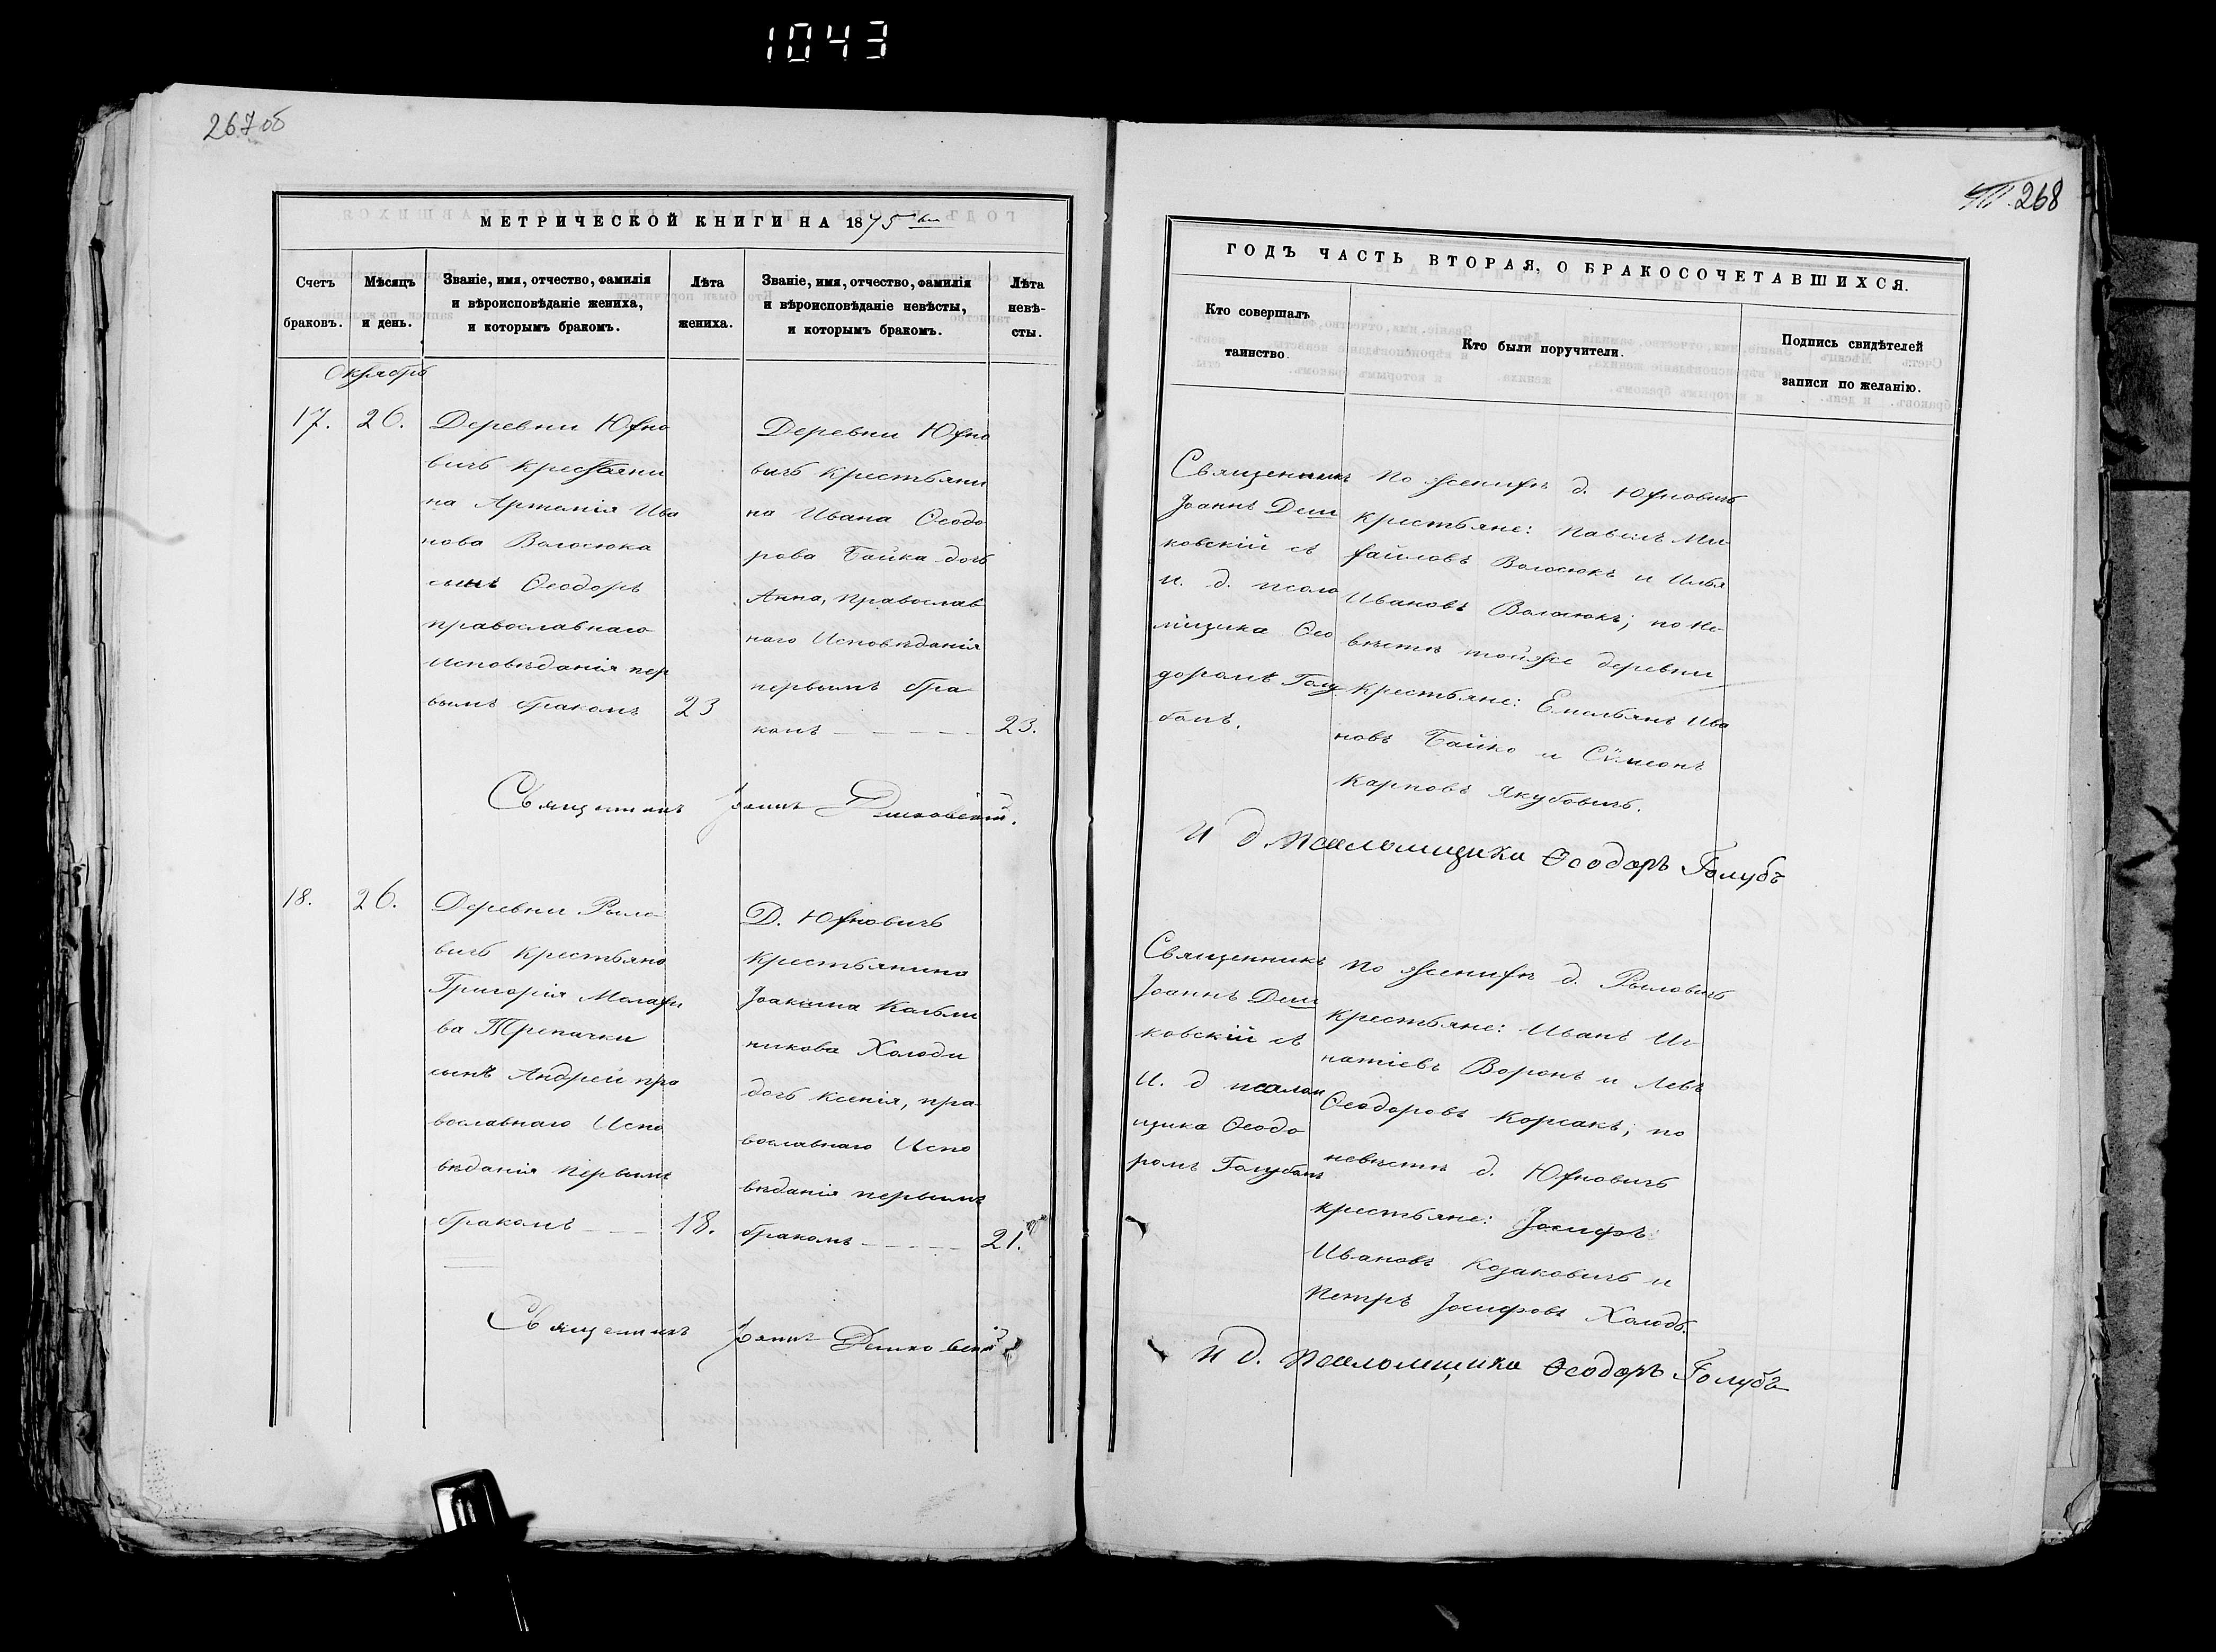 1043
267об
МЕТРИЧЕСКОЙ КНИГИ НА 1875
Счетъ браковъ.
Мѣсяцъ и день.
Званіе, имя, отчество, фамилія
и вѣроисповѣданіе жениха,
и которымъ бракомъ.
Лѣта жениха.
Званіе, имя, отчество, фамилія
и вѣроисповѣданіе невѣсты,
и которымъ бракомъ.
Лѣта невѣ-
сты.
Октябрь
17.
26.
Деревни Юхно
вичъ крестьяни
на Артемія Ива
нова Волосюка
сынъ Ѳеодоръ
православнаго
Исповѣданія пер
вымъ бракомъ
23
Деревни Юхно
вичъ крестьяни
на Ивана Ѳеодо
рова Байка дочь
Анна, православ
наго Исповѣданія
первымъ бра
комъ
23.
Священникъ Іоаннъ Дешковскій.
18.
26.
Деревни Рыло
вичъ крестьяно
Григорія Малахі
ва Трепачки
сынъ Андрей пра
вославнаго Испо
вѣданія первымъ
бракомъ
18.
Д. Юхновичъ
крестьянина
Іоакима
никова Холоди
дочь Ксенія, пра-
вославнаго Испо
вѣданія первымъ
бракомъ
21.
Священникъ Іоаннъ Дешковскій
268
ГОДЪ ЧАСТЬ ВТОРАЯ, О БРАКОСОЧЕТАВШИХСЯ.
Кто совершалъ
таинство.
Кто были поручители.
Подпись свидѣтелей
записи по желанію.
Священникъ
Іоаннъ Деш
ковскій съ
и. д. псало
мщика Ѳео
доромъ Голу
бомъ.
по женихѣ д. Юхновичъ
крестьяне: Павелъ Ми-
хайловъ Волосюкъ и Илья
Ивановъ Волосюкъ; по не-
вѣстѣ тойже деревни
крестьяне: Емельянъ Ива
новъ Байко и Сѵмеонъ
Карповъ Якубовичъ.
И д. Псаломщика Ѳеодоръ Голубъ
Священникъ
Іоаннъ Деш
ковскій съ
И. д псалом
щика Ѳеодо
ромъ Голубомъ
по женихѣ д. Рыловичъ
крестьяне: Иванъ Иг-
натіевъ Воронъ и Левъ
Ѳеодоровъ Корсакъ; по
невѣстѣ д. Юхновичъ
крестьяне: Іосифъ
Ивановъ Козаковичъ и
Петръ Іосифовъ Холодъ.
И д. Псаломщика Ѳеодоръ Голубъ